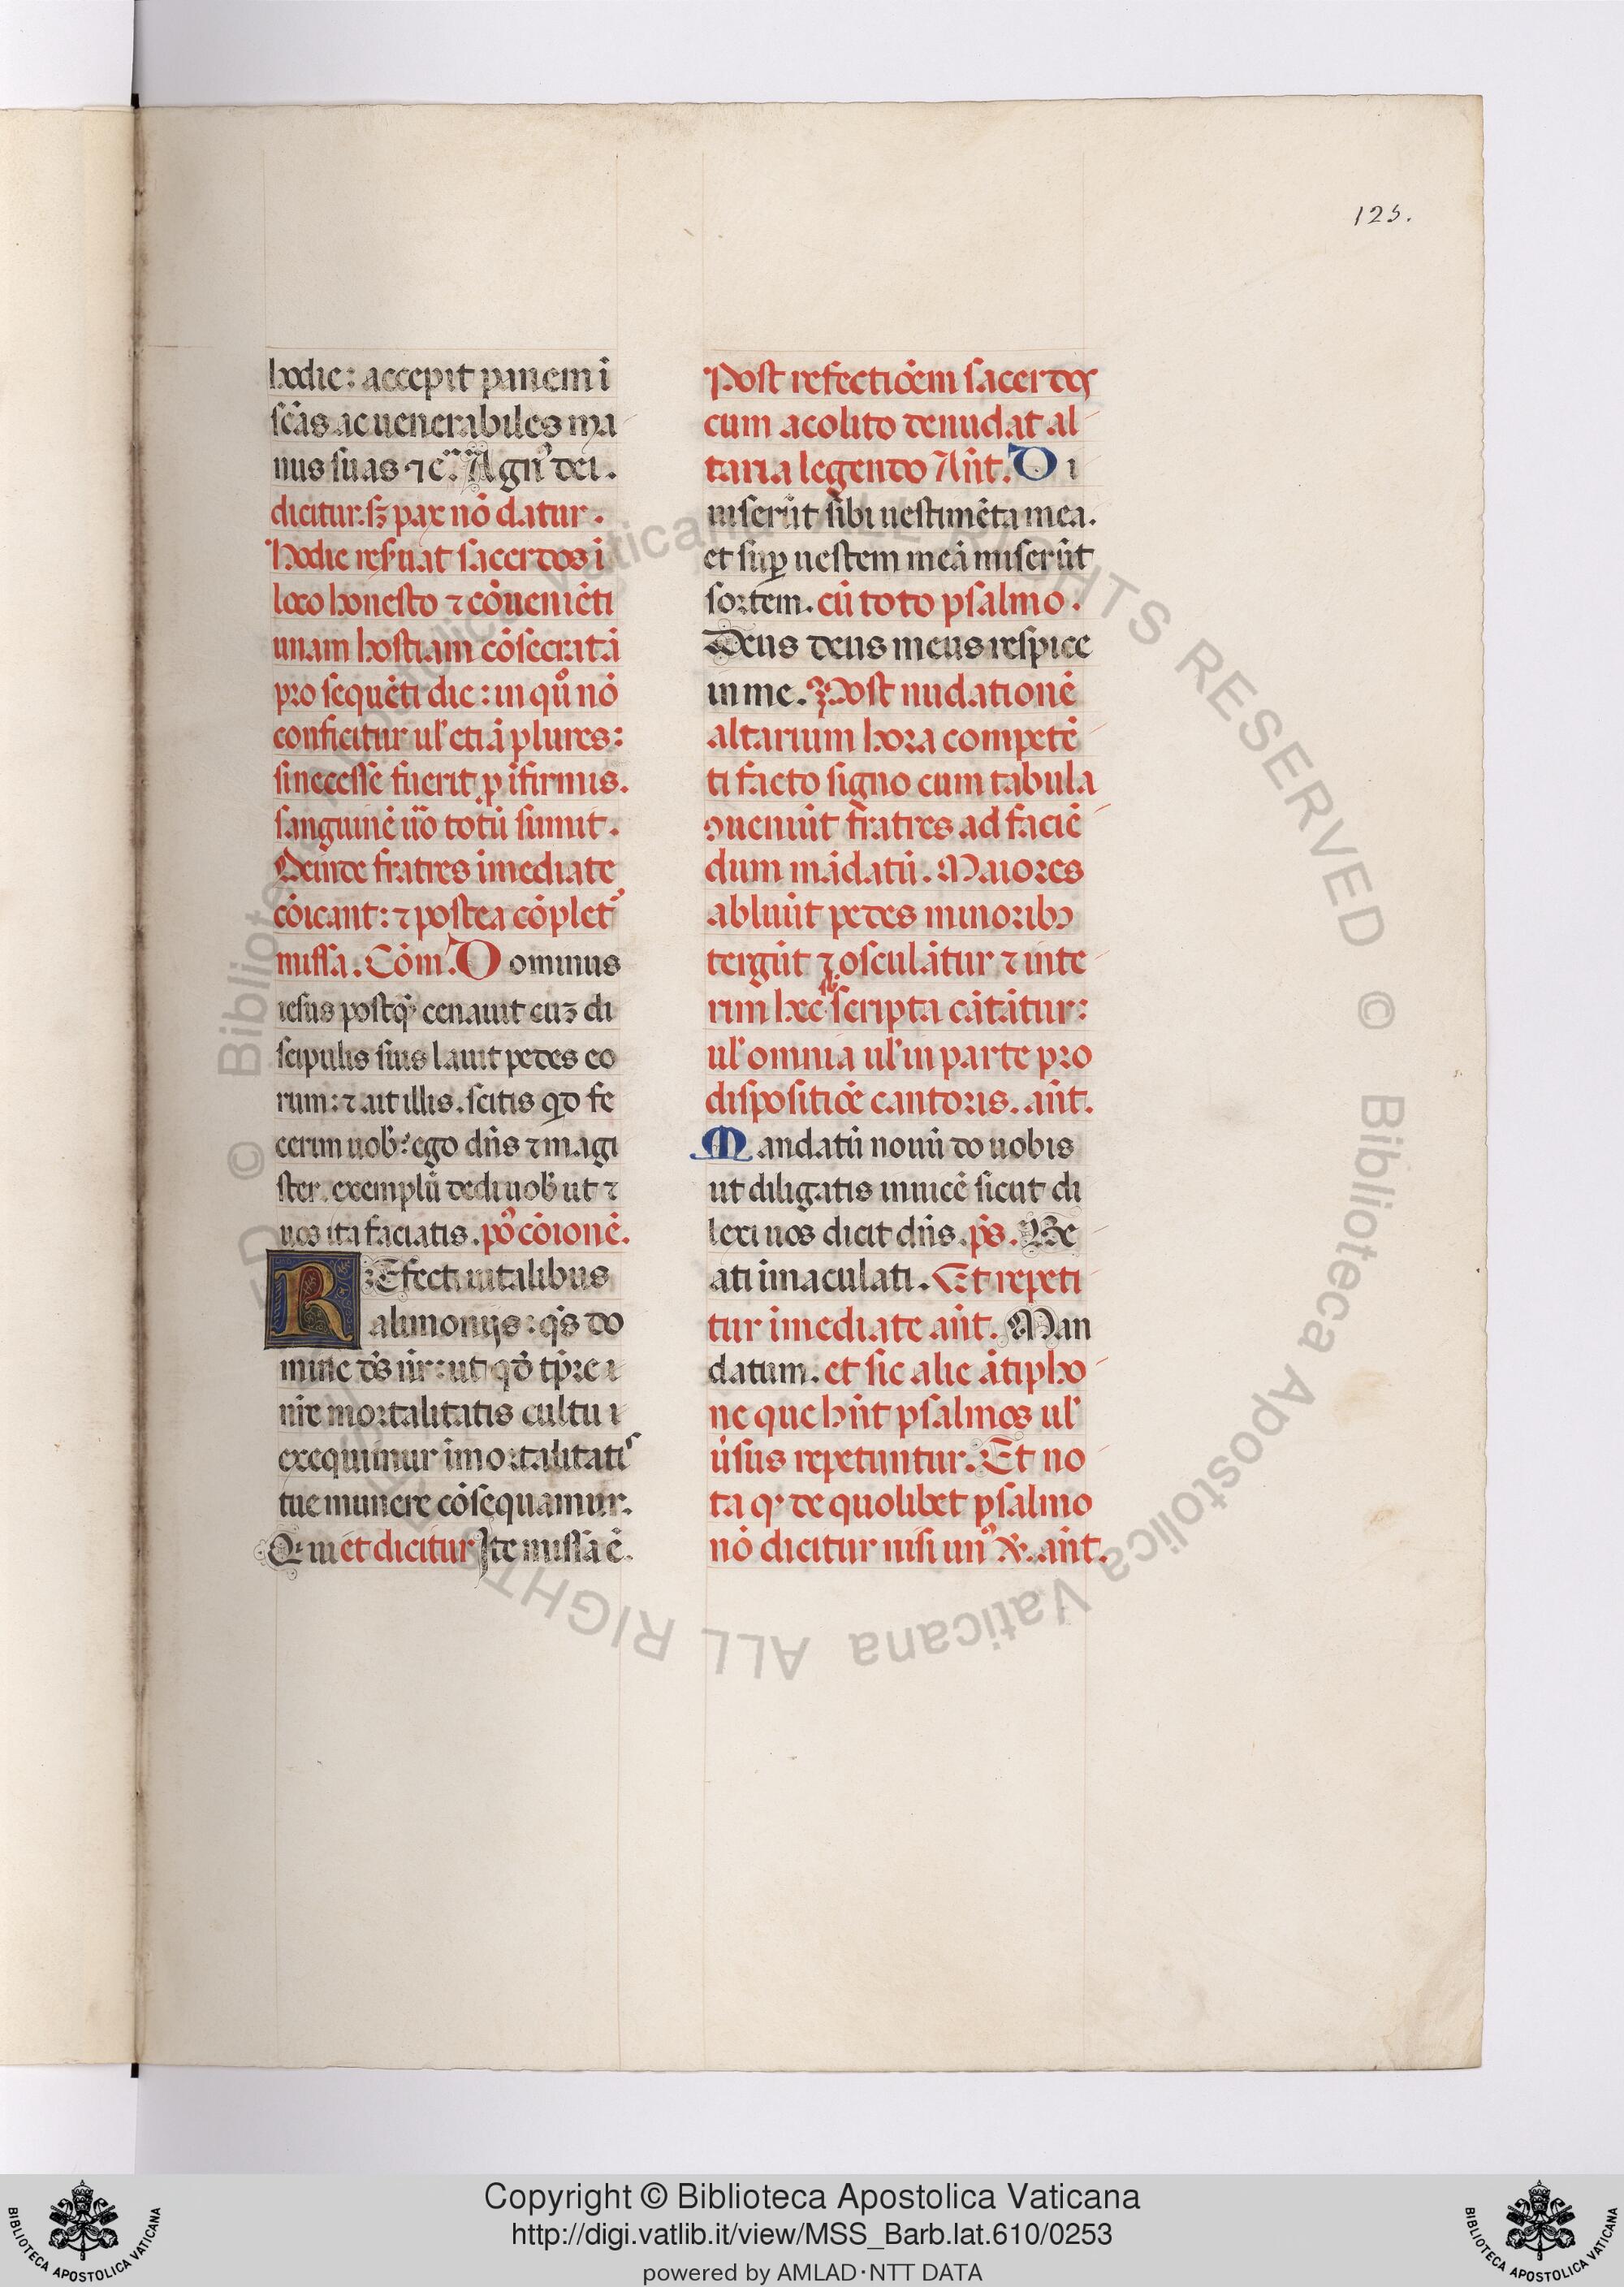 125.
hodie: accepit panem ī
scās ac uenerabiles ma
nus suas ⁊ cͣ. Agnꝰ dei.
dicitur. sꝫ pax nō datur.
Hodie res̄uat sacerdos ī
loco honesto ⁊ cōueniēti
unam hostiam cōsecratā
pro sequēti die: in quͦ nō
conficitur ul̓ etiā plures:
si necesse fuerit ꝓ īfirmis.
sanguinē ūo totū sumit.
Deinde fratres īmediate
cōicant: ⁊ postea cōplet᷑
missa. Cōm. Dominus
iesus postq̄ cenauit cuꝫ di
scipulis suis lauit pedes eo
rum: ⁊ ait illis. scitis qd̓ fe
cerim uob̓: ego dn̄s ⁊ magi
ster. exemplū dedi uob̓ ut ⁊
uos ita faciatis. pꝰ cōionē.
REfecti uitalibus
alimonijs: qs̄ do
mine ds̄ nr̄: ut qd̓ tp̄re
nr̄e mortalitatis cultu
exequimur īmortalitatis
tue munere cōsequamur.
Q̄ui et dicitur Ite missa ē.
Post refectiōem sacerdos
cum acolito denudat al
taria legendo Añt. Di
uiserūt sibi uestimēta mea.
et suꝑ uestem meā miserūt
sortem. cū toto psalmo.
Deus deus meus respice
in me. Post nudationē
altarium hora competē
ti facto signo cum tabula
ꝯueniūt fratres ad faciē
dum mādatū. Maiores
abluūt pedes minoribꝰ
tergūt ⁊ osculātur ⁊ inte
rim hec scripta cātātur:
ul̓ omnia ul̓ in parte pro
dispositiōe cantoris. añt.
Mandatū nouū do uobis
ut diligatis inuicē sicut di
lexi uos dicit dn̄s. ps̄. Be
ati īmaculati. Et repeti
tur īmediate añt. Man
datum. et sic alie ātipho
ne que hn̄t psalmos ul̓
ūsus repetuntur. Et no
ta q̓ de quolibet psalmo
nō dicitur nisi unꝰ ℣. añt.
Copyright © Biblioteca Apostolica Vaticana
http://digi.vatlib.it/view/MSS_Barb.lat.610/0253
powered by AMLAD·NTT DATA
© Biblioteca Apostolica Vaticana ALL RIGHTS RESERVED © Biblioteca Apostolica Vaticana ALL RIGHTS
BIBLIOTECA APOSTOLICA VATICANA
BIBLIOTECA APOSTOLICA VATICANA